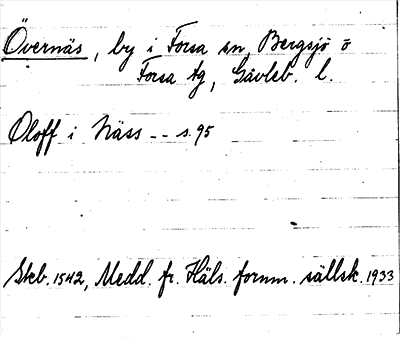 Övernäs, by i Forsa sn, Bergsjö o
Forsa tg, Gävleb. l.
Oloff i Näss -- s. 95
Skb. 1542, Medd. fr. Häls. fornm. sällsk. 1933